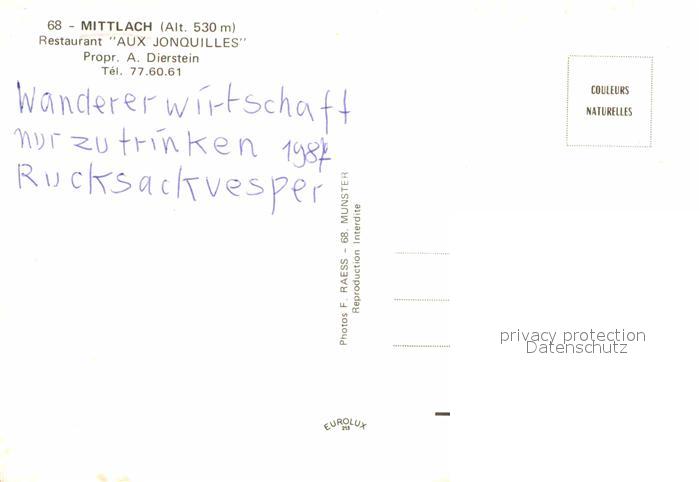 68 - MITTLACH (Alt. 530 m)
Restaurant "AUX JONQUILLES"
Propr. A. Dierstein
Tél. 77.60.61
Wandererwirtschaft
nur zu trinken 1987
Rucksackvesper
COULEURS
NATURELLES
Photos F. RAESS - 68. MUNSTER
Reproduction Interdite
privacy protection
Datenschutz
EUROLUX